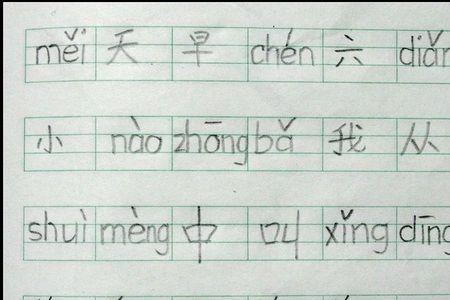 měi 天 早 chén 六 diǎn
小 nào zhōng bǎ 我 从
shuì mèng 中 叫 xǐng dīng